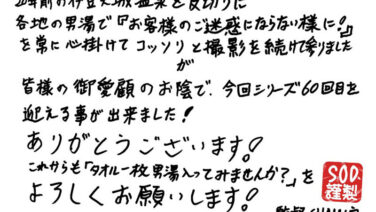 各地の男湯で『お客様のご迷惑にならない様に!』
を常に心掛けてコッソリと撮影を続けて参りました
が
皆様の御愛顧のお陰で、今回シリーズ60回目を
迎える事が出来ました!
ありがとうございます!
これからも「タオル一枚男湯入ってみませんか?」を
よろしくお願いします!
SOD
謹製
監督